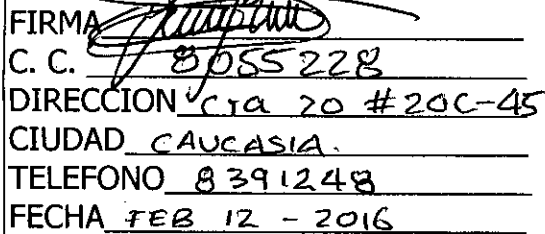 FIRMA
C. C. 8055228
DIRECCION Cra 20 #20C-45
CIUDAD CAUCASIA.
TELEFONO 8391248
FECHA FEB 12 - 2016